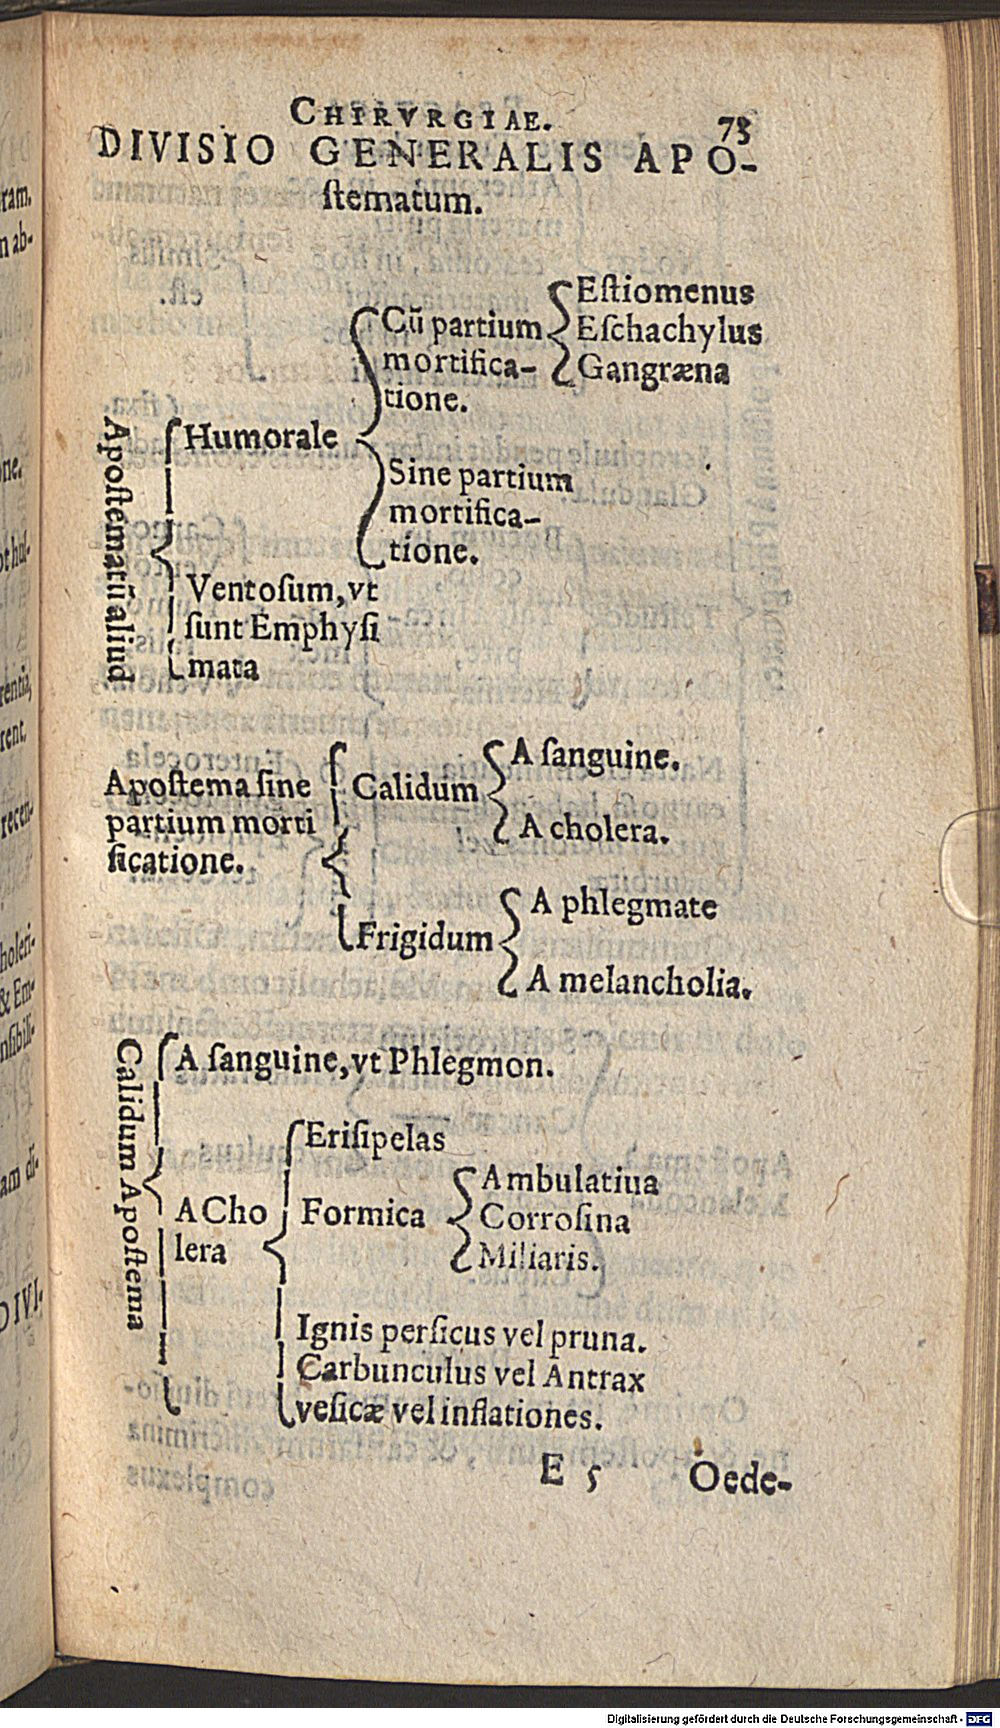 CHIRVRGIAE. 73
DIVISIO GENERALIS APO-
ſtematum.
Apoſtematū aliud
Humorale
Cū partium
mortifica-
tione.
Eſtiomenus
Eſchachylus
Gangræna
Sine partium
mortifica-
tione.
Ventoſum, vt
ſunt Emphyſi
mata
Apoſtema ſine
partium morti
ficatione.
Calidum
A ſanguine.
A cholera.
Frigidum
A phlegmate
A melancholia.
Calidum Apoſtema
A ſanguine, vt Phlegmon.
A Cho
lera
Eriſipelas
Formica
Ambulatiua
Corroſina
Miliaris.
Ignis perſicus vel pruna.
Carbunculus vel Antrax
veſicæ vel inflationes.
E 5 Oede-
ram.
n ab-
one.
rentia,
rent.
recen-
holeri-
& Em-
nſibili-
am di-
DIVI-
Digitalisierung gefördert durch die Deutsche Forschungsgemeinschaft - DFG